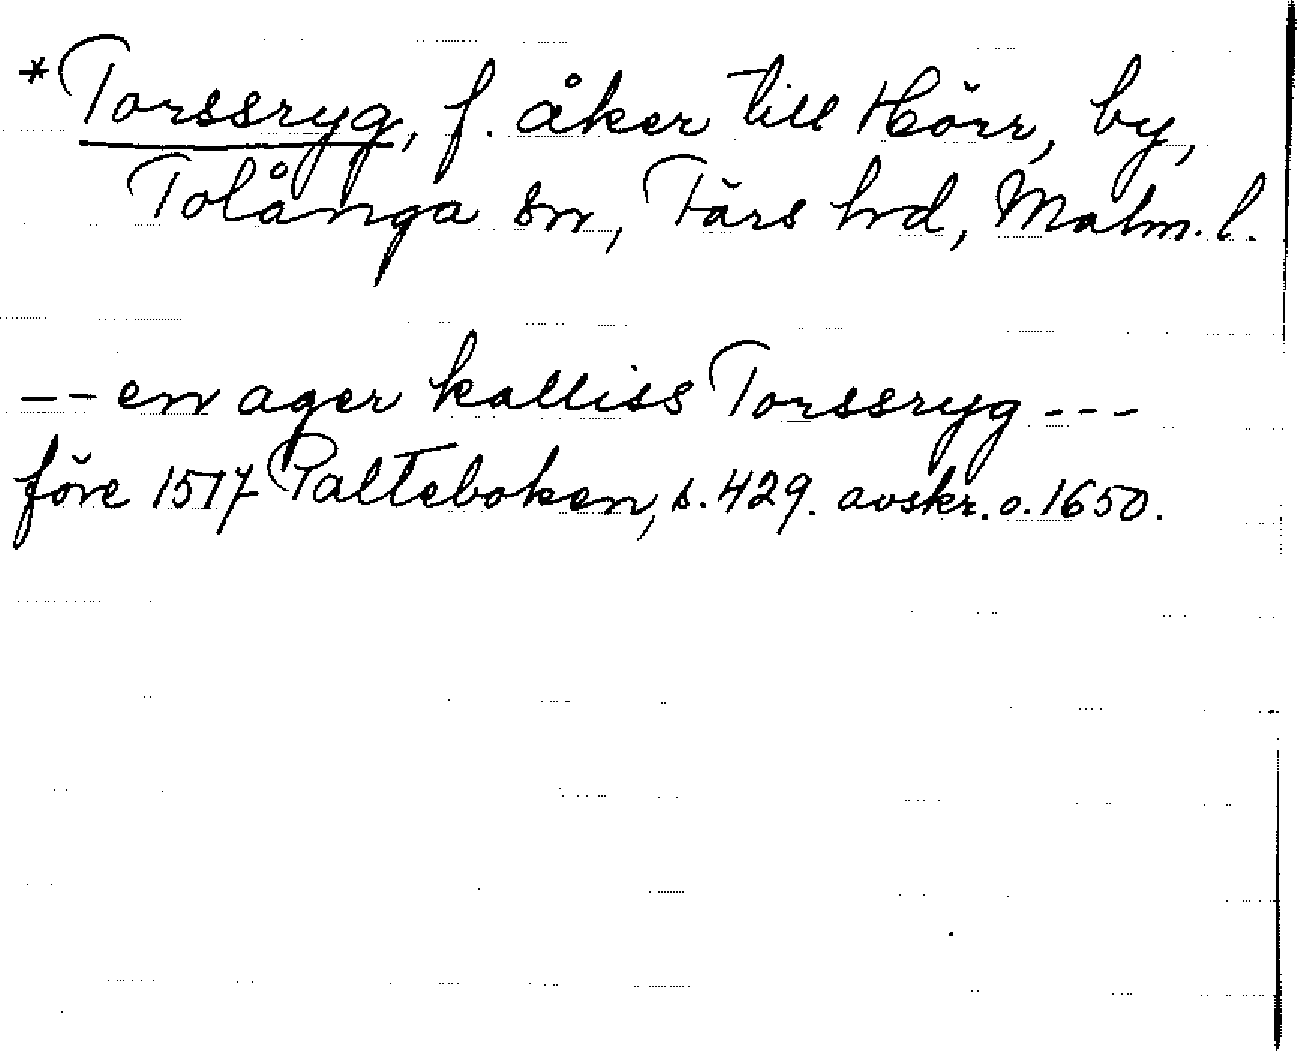 *Torssryg, f. åker till Hörr, by,
Tolånga sn, Färs hrd, Malm. l.
-- en ager kalliss Torssryg ---
före 1517 Palteboken, s. 429. avskr. o. 1650.